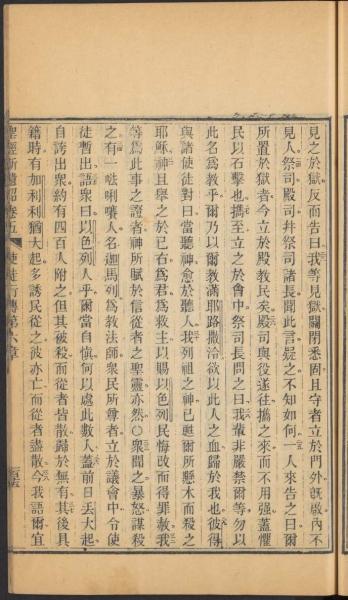 見之於獄反而告曰我等見獄關閉悉固且守者立於門外旣啟內不
見人祭司殿司幷祭司諸長聞此言疑之不知如何一人來告之曰爾
所置於獄者今立於殿教民矣殿司與役遂往攜之來而不用强蓋懼
民以石擊也攜至立之於會中祭司長問之曰我輩非嚴禁爾等勿以
此名爲教乎爾乃以爾教滿耶路撒冷欲以此人之血歸於我也彼得
與諸使徒對曰當聽神愈於聽人我列祖之神已甦爾所懸木而殺之
耶穌神且舉之於已右爲君爲救主以賜以色列民悔改而得罪赦我
等爲此事之證者神所賦於信從者之聖靈亦然○衆聞之暴怒謀殺
之有一𠵽唎㘔人名迦馬列爲教法師衆民所尊者立於議會中令使
徒暫出語衆曰以色列人乎爾當自愼何以處此數人蓋前日丟大起
自誇出衆約有四百人附之但其被殺而從者皆散歸於無有其後具
籍時有加利利猶大起多誘民從之彼亦亡而從者盡散今我語爾宜
聖經新遺詔卷五 使徒行傳第六章